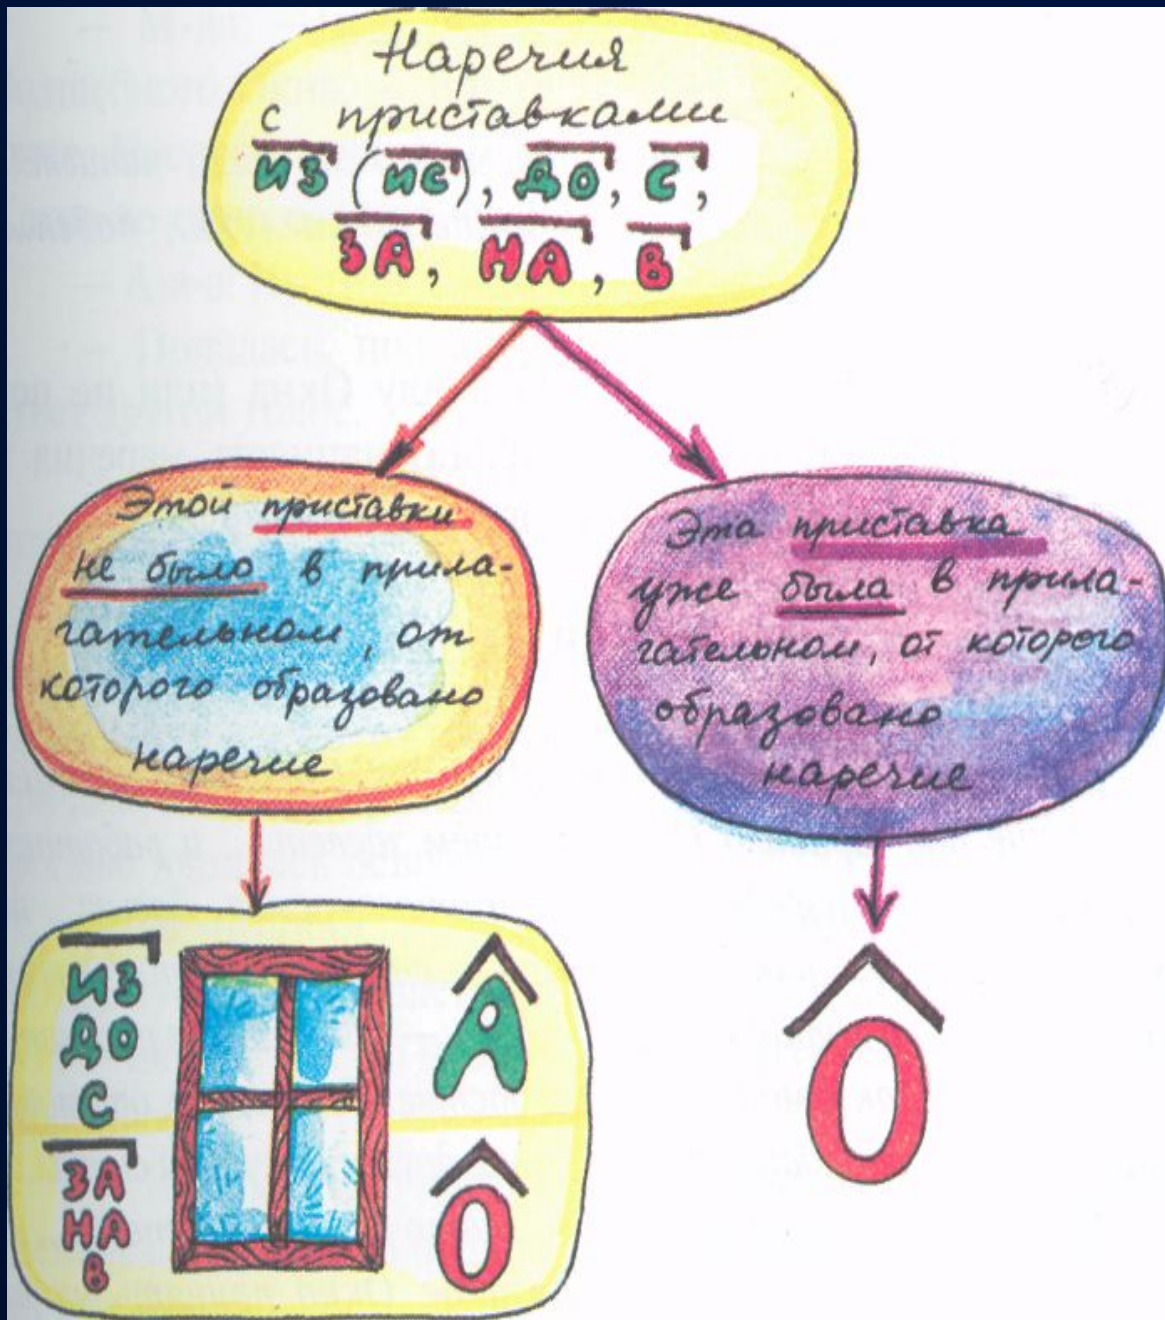 Наречия
с приставками
ИЗ (ИС), ДО, С,
ЗА, НА, В
Этой приставки
не было в прила-
гательном, от
которого образовано
наречие
Эта приставка
уже была в прила-
гательном, от которого
образовано
наречие
ИЗ
ДО
С
А
ЗА
НА
В
О
О